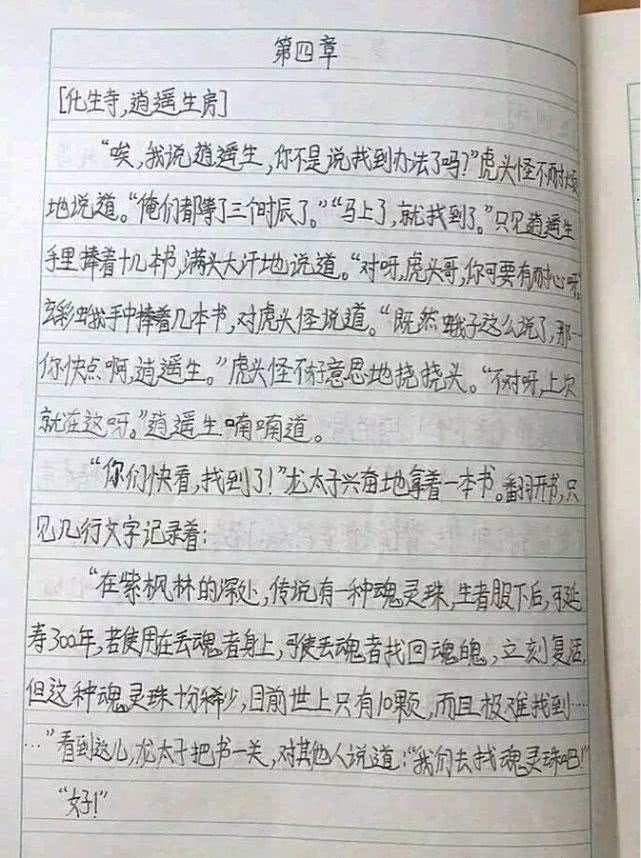 第四章
[化生寺,逍遥生房]
“唉,我说逍遥生,你不是说找到办法了吗?”虎头怪不耐烦
地说道。“俺们都等了三个时辰了。”“马上了,就找到了。”只见逍遥生
手里捧着十几本书,满头大汗地说道。“对呀,虎头哥,你可要有耐心呀。”
玄彩蛾手中捧着几本书,对虎头怪说道。“既然蛾子这么说了,那一
你快点啊,逍遥生。”虎头怪不好意思地挠挠头。“不对呀,上次
就在这呀。”逍遥生喃喃道。
“你们快看,找到了!”龙太子兴奋地拿着一本书。翻开书,只
见几行文字记录着:
“在紫枫林的深处,传说有一种魂灵珠,生者服下后,可延
寿300年,若使用在丢魂者身上,可使丢魂者找回魂魄,立刻复活,
但这种魂灵珠十分稀少,目前世上只有10颗,而且极难找到……
…”看到这儿,龙太子把书一关,对其他人说道:“我们去找魂灵珠吧!”
“好!”